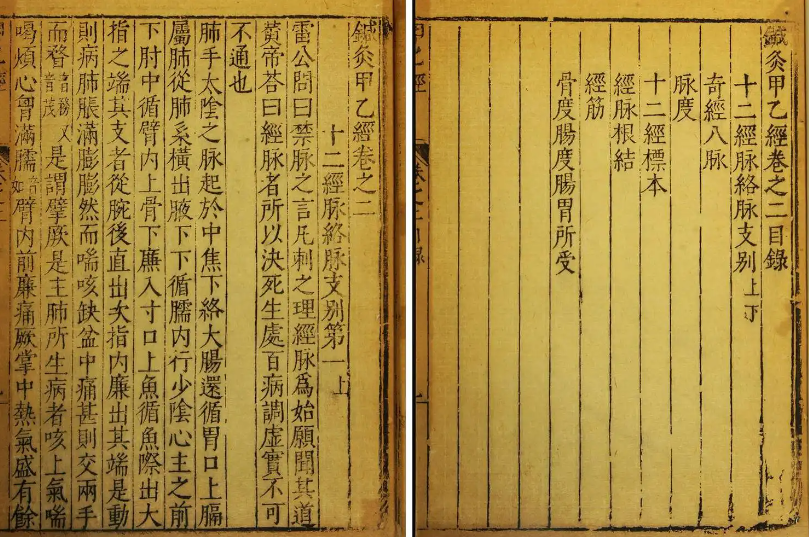 鍼灸甲乙經卷之二目錄
十二經脉絡脉支别上下
奇經八脉
脉度
十二經標本
經脉根結
經筋
骨度腸度腸胃所受
鍼灸甲乙經卷之二
十二經脉絡脉支别第一上
雷公問曰禁脉之言凡刺之理經脉爲始願聞其道
黄帝荅曰經脉者所以决死生處百病調虛實不可
不通也
肺手太陰之脉起於中焦下絡大腸還循胃口上膈
屬肺從肺系橫出腋下下循臑内行少陰心主之前
下肘中循臂内上骨下廉入寸口上魚循魚際出大
指之端其支者從腕後直出次指内廉出其端是動
則病肺脹滿膨膨然而喘咳缺盆中痛甚則交兩手
而瞀音務又音茂是謂臂厥是主肺所生病者咳上氣喘
喝煩心胷滿臑音如臂内前廉痛厥掌中熱氣盛有餘